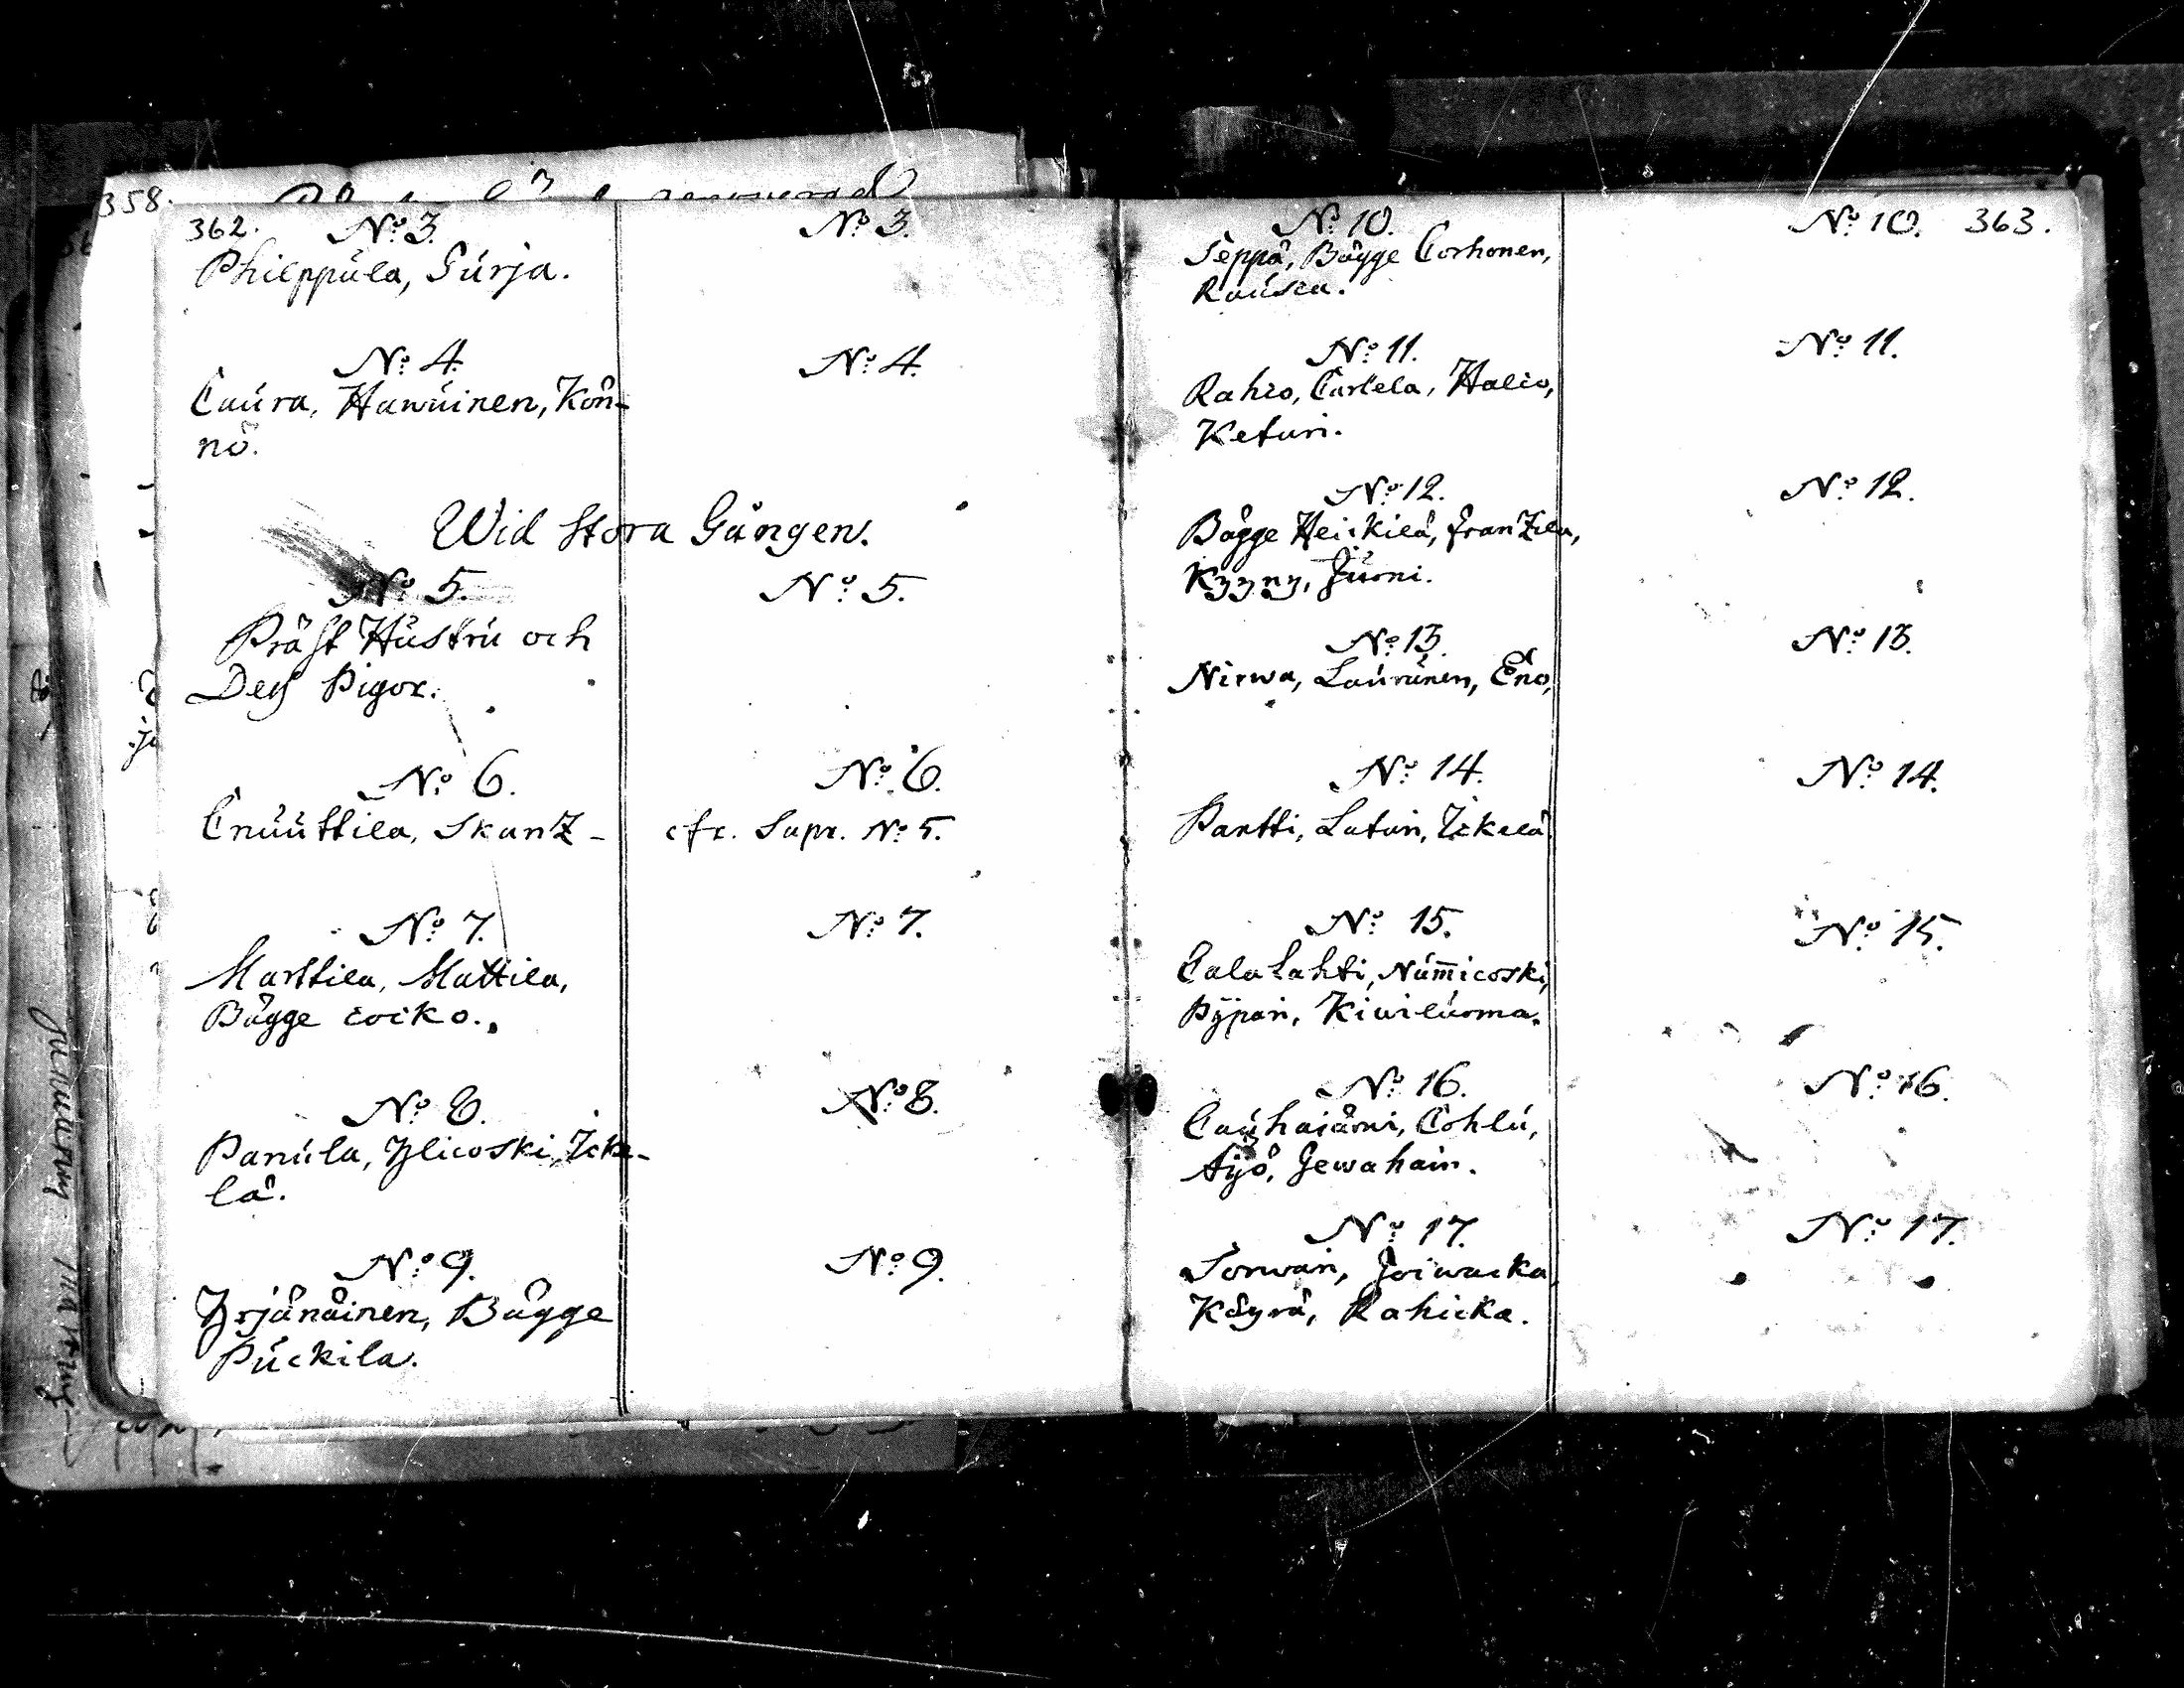 358.
362. No 3. No 3.
Philppula, Surja.
No 4. No 4.
Caura, Hanuinen, Kön-
nö.
Wid stora Gången.
No 5. No 5.
Präst Hustru och
Deß Pigor.
No 6. No 6.
Cnuuttila, Skantz- cfr. Supr. No 5.
No 7. No 7.
Marttila, Mattila,
Bägge Loiko.
No 8. No 8.
Panula, Ylicoski, Icke-
lä.
No 9. No 9.
Yrjänäinen, Bägge
Puckila.
No 10. No 10. 363.
Seppä, Bägge Corhonen,
Rausca.
No 11. No 11.
Rahco, Cartela, Halio,
Keturi.
No 12. No 12.
Bägge Heickilä, Frantzila,
Kyyny, Juoni.
No 13. No 13.
Nirwa, Laurunen, Eno,
No 14. No 14.
Pantti, Laturi, Ickelä
No 15. No 15.
Calalahti, Num̅icoski,
Pypari, Kiwiluoma.
No 16. No 16.
Cauhajärwi, Cohlu,
Äijö, Jewahain.
No 17. No 17.
Sorwari, Joiwacka,
Köyrä, Rahicka.